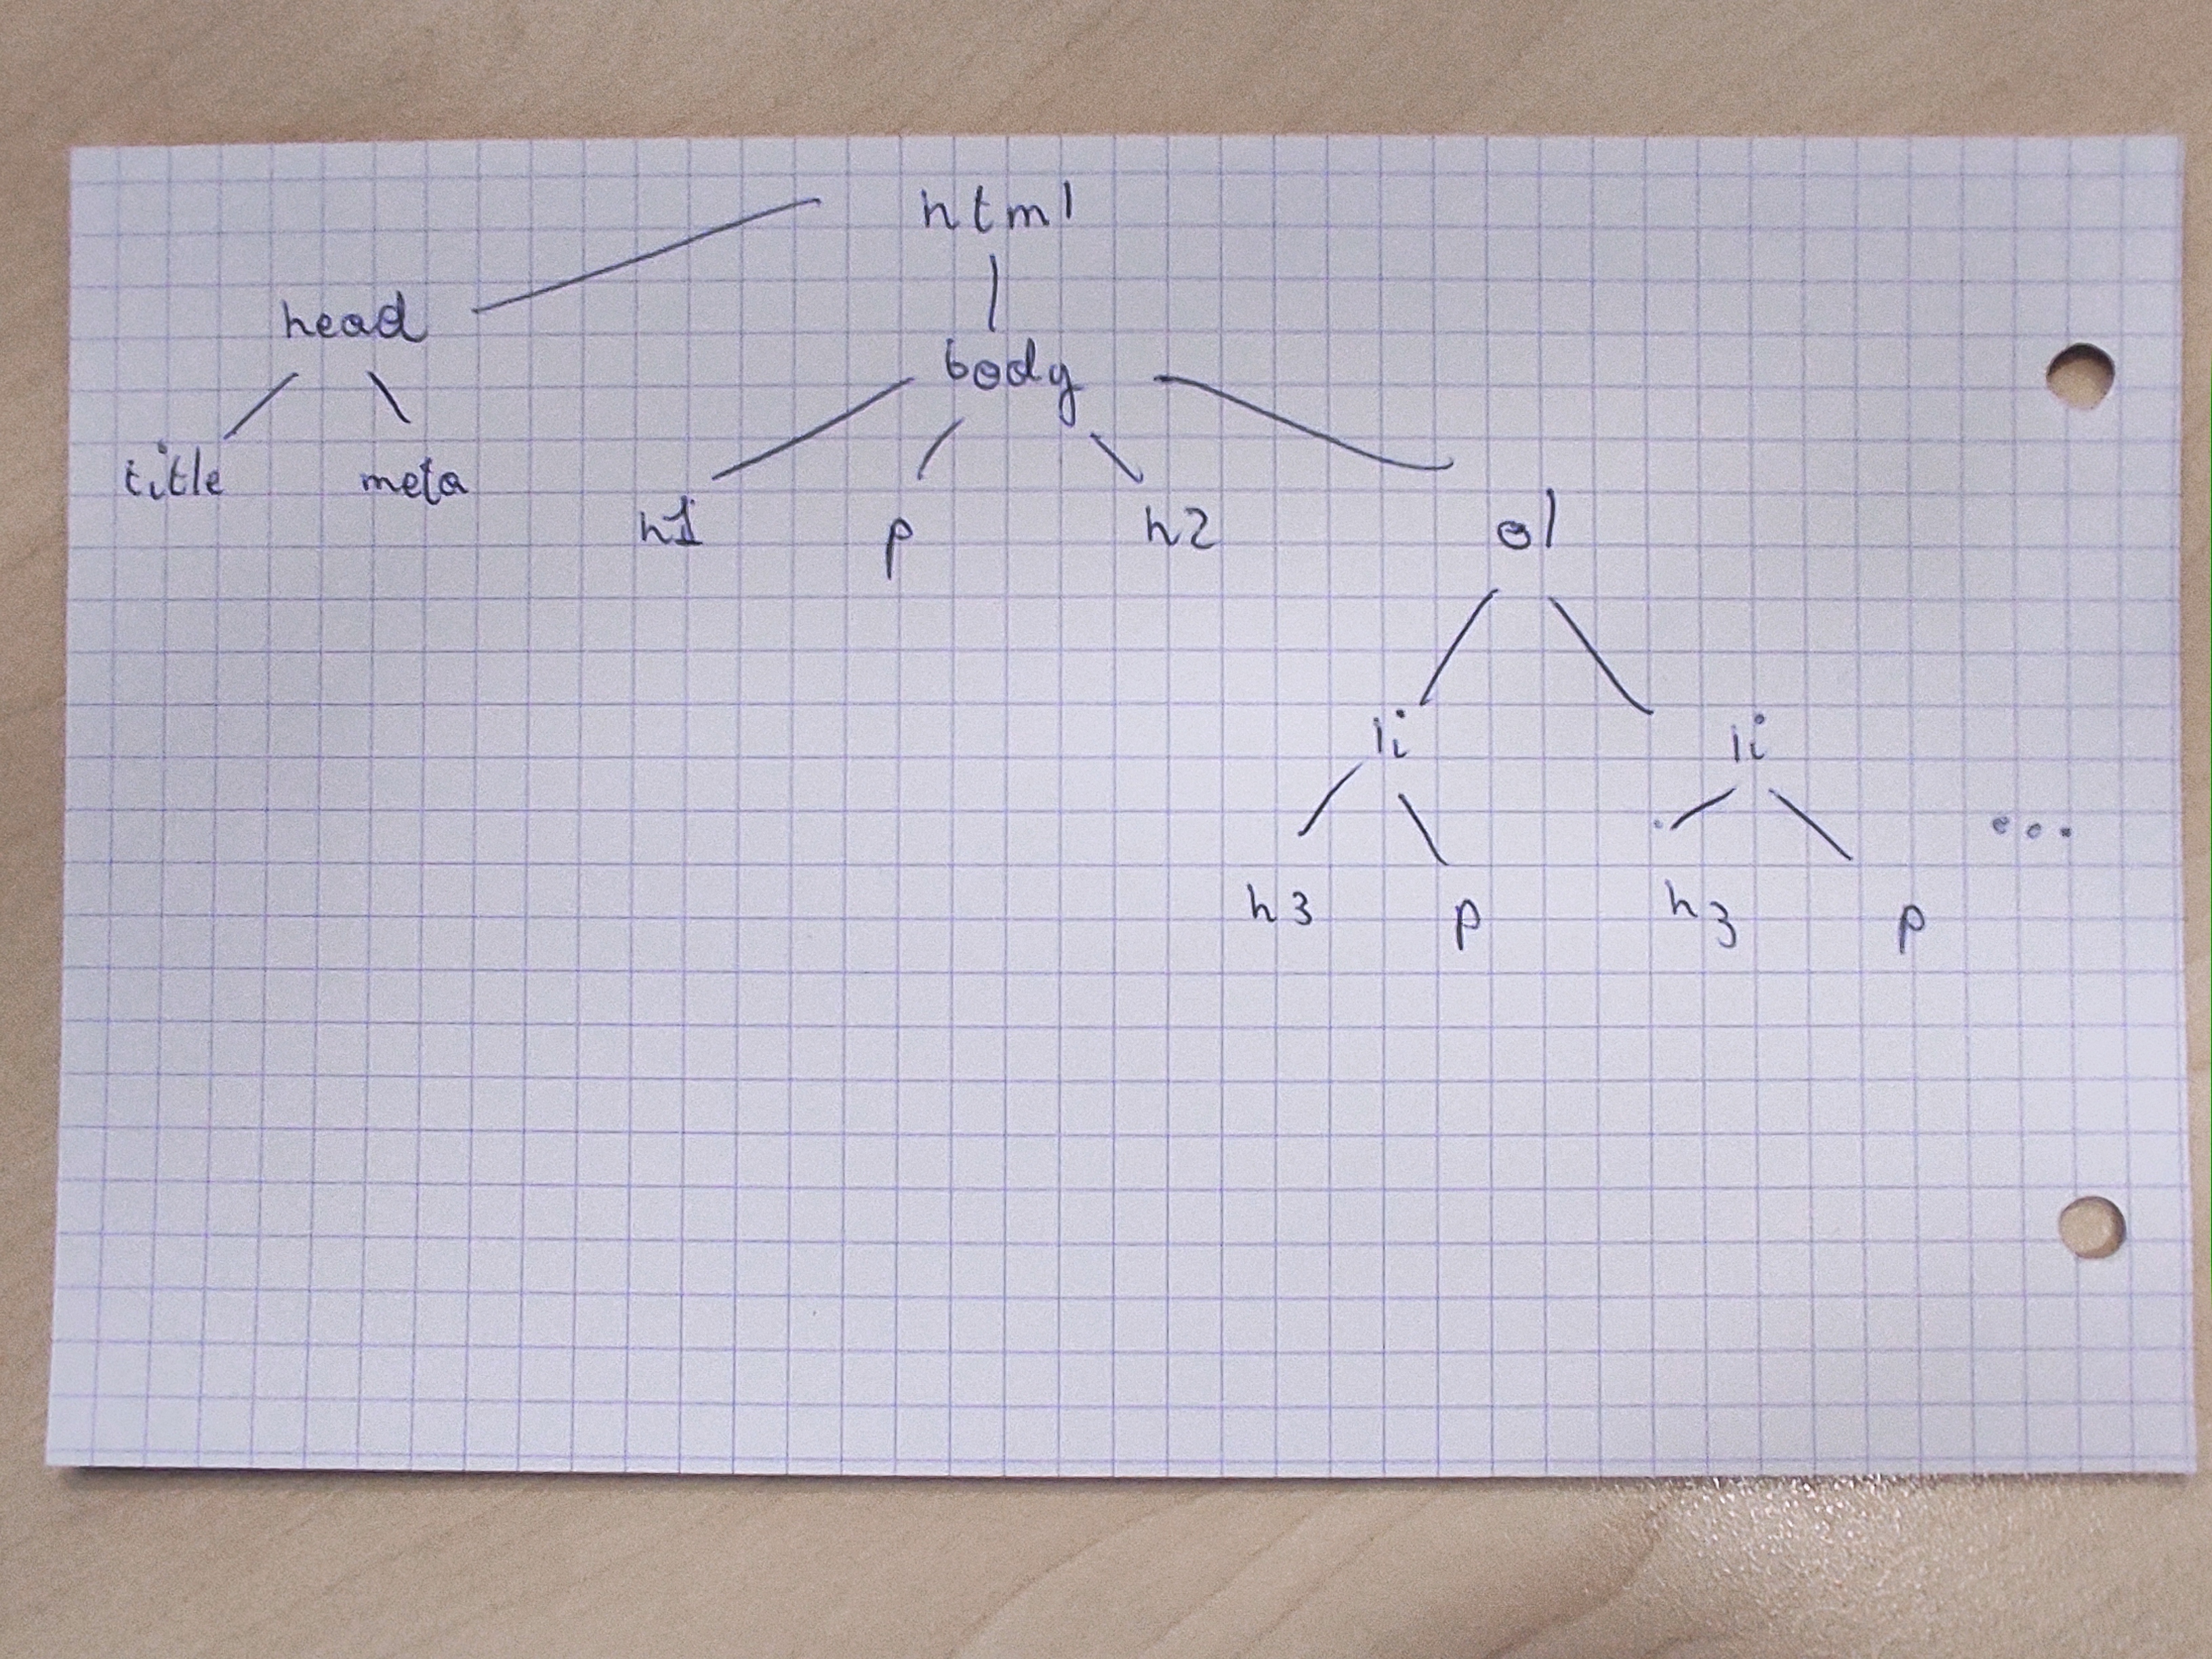 html
head
body
title meta
h1 p h2 ol
li li
...
h3 p h3 p